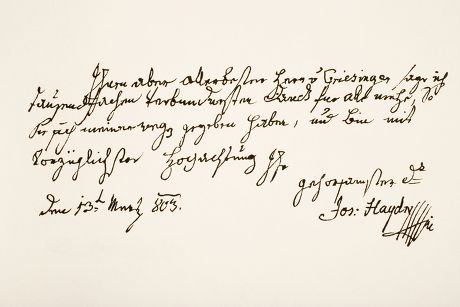 Ihnen aber allerbester Herr v Griesinger sage ich
tausendfachen verbundensten Danck für alle mühe, So
Sie sich meinetwegen gegeben haben, und bin mit
Vorzüglichster Hochachtung Ihr
gehorsamster dr
Den 13t Mertz 803.
Jos: Haydn mpi